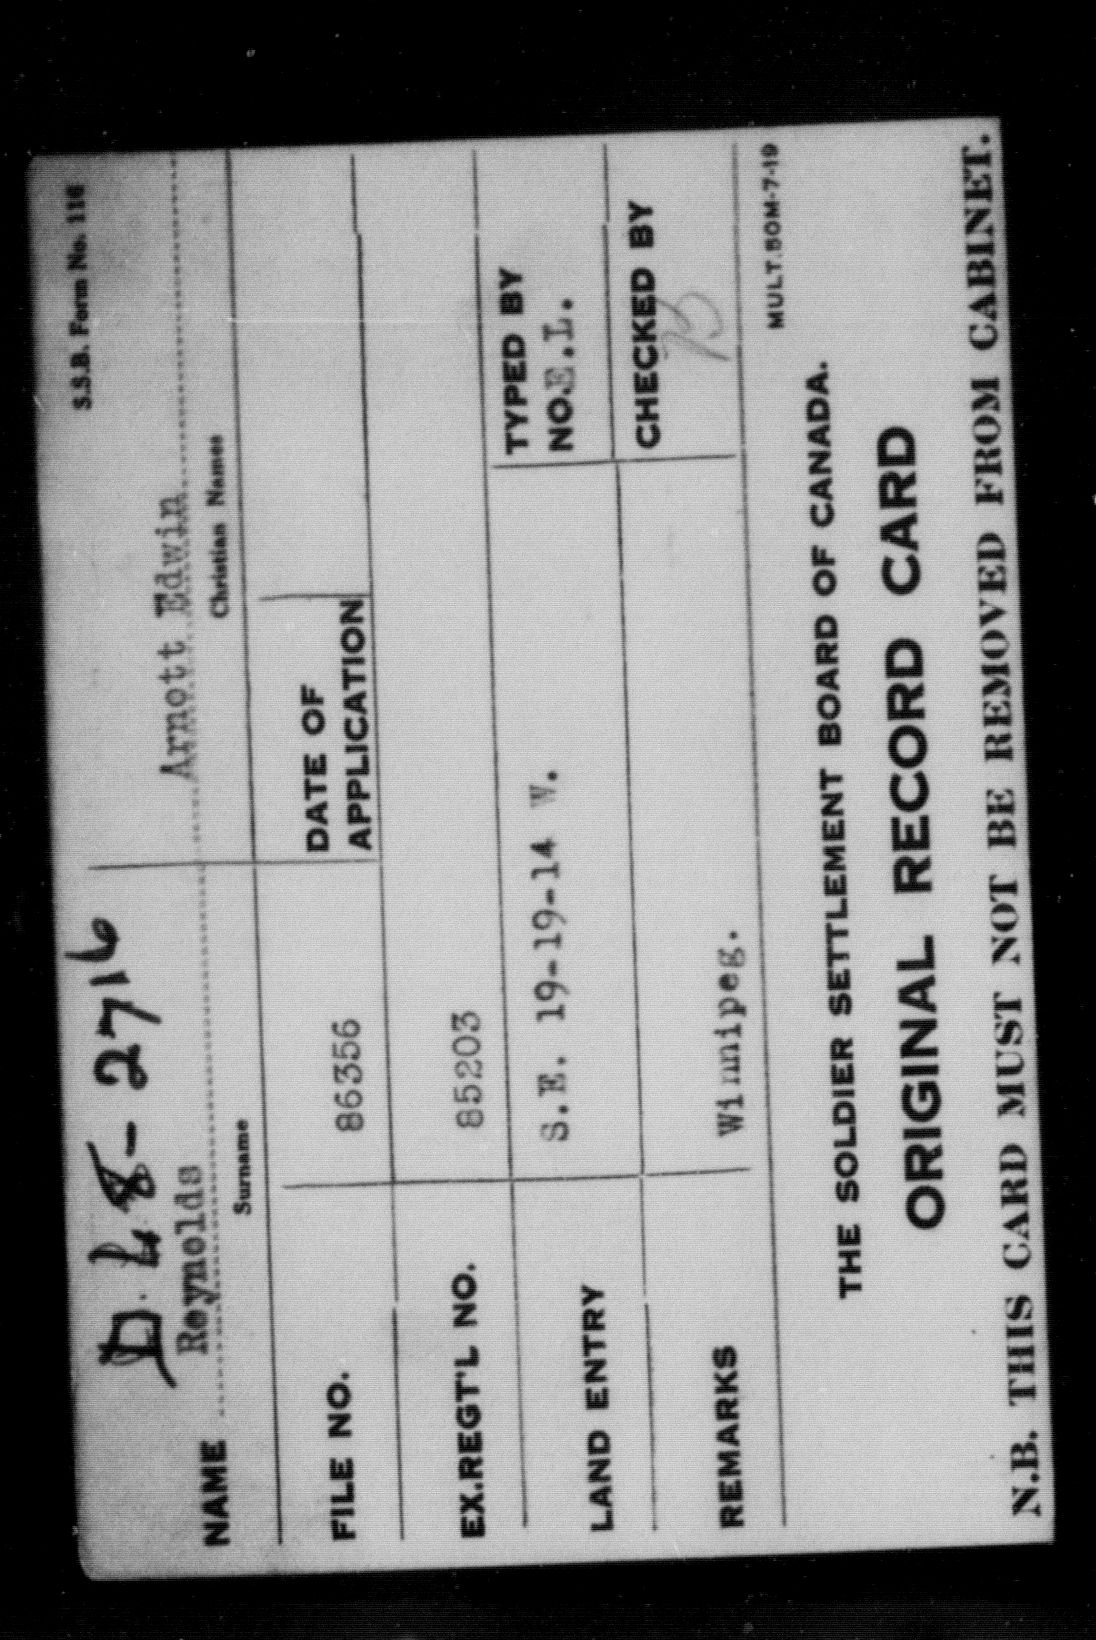 S.S.B. Form No. 116
D. L8-2716
NAME Reynolds Arnott Edwin
Surname Christian Names
FILE NO. 86356 DATE OF APPLICATION
EX.REGT'L NO. 85203
LAND ENTRY S.E. 19-19-14 W. TYPED BY NO.E.L.
REMARKS Winnipeg. CHECKED BY
MULT.50M-7-19
THE SOLDIER SETTLEMENT BOARD OF CANADA.
ORIGINAL RECORD CARD
N.B. THIS CARD MUST NOT BE REMOVED FROM CABINET.